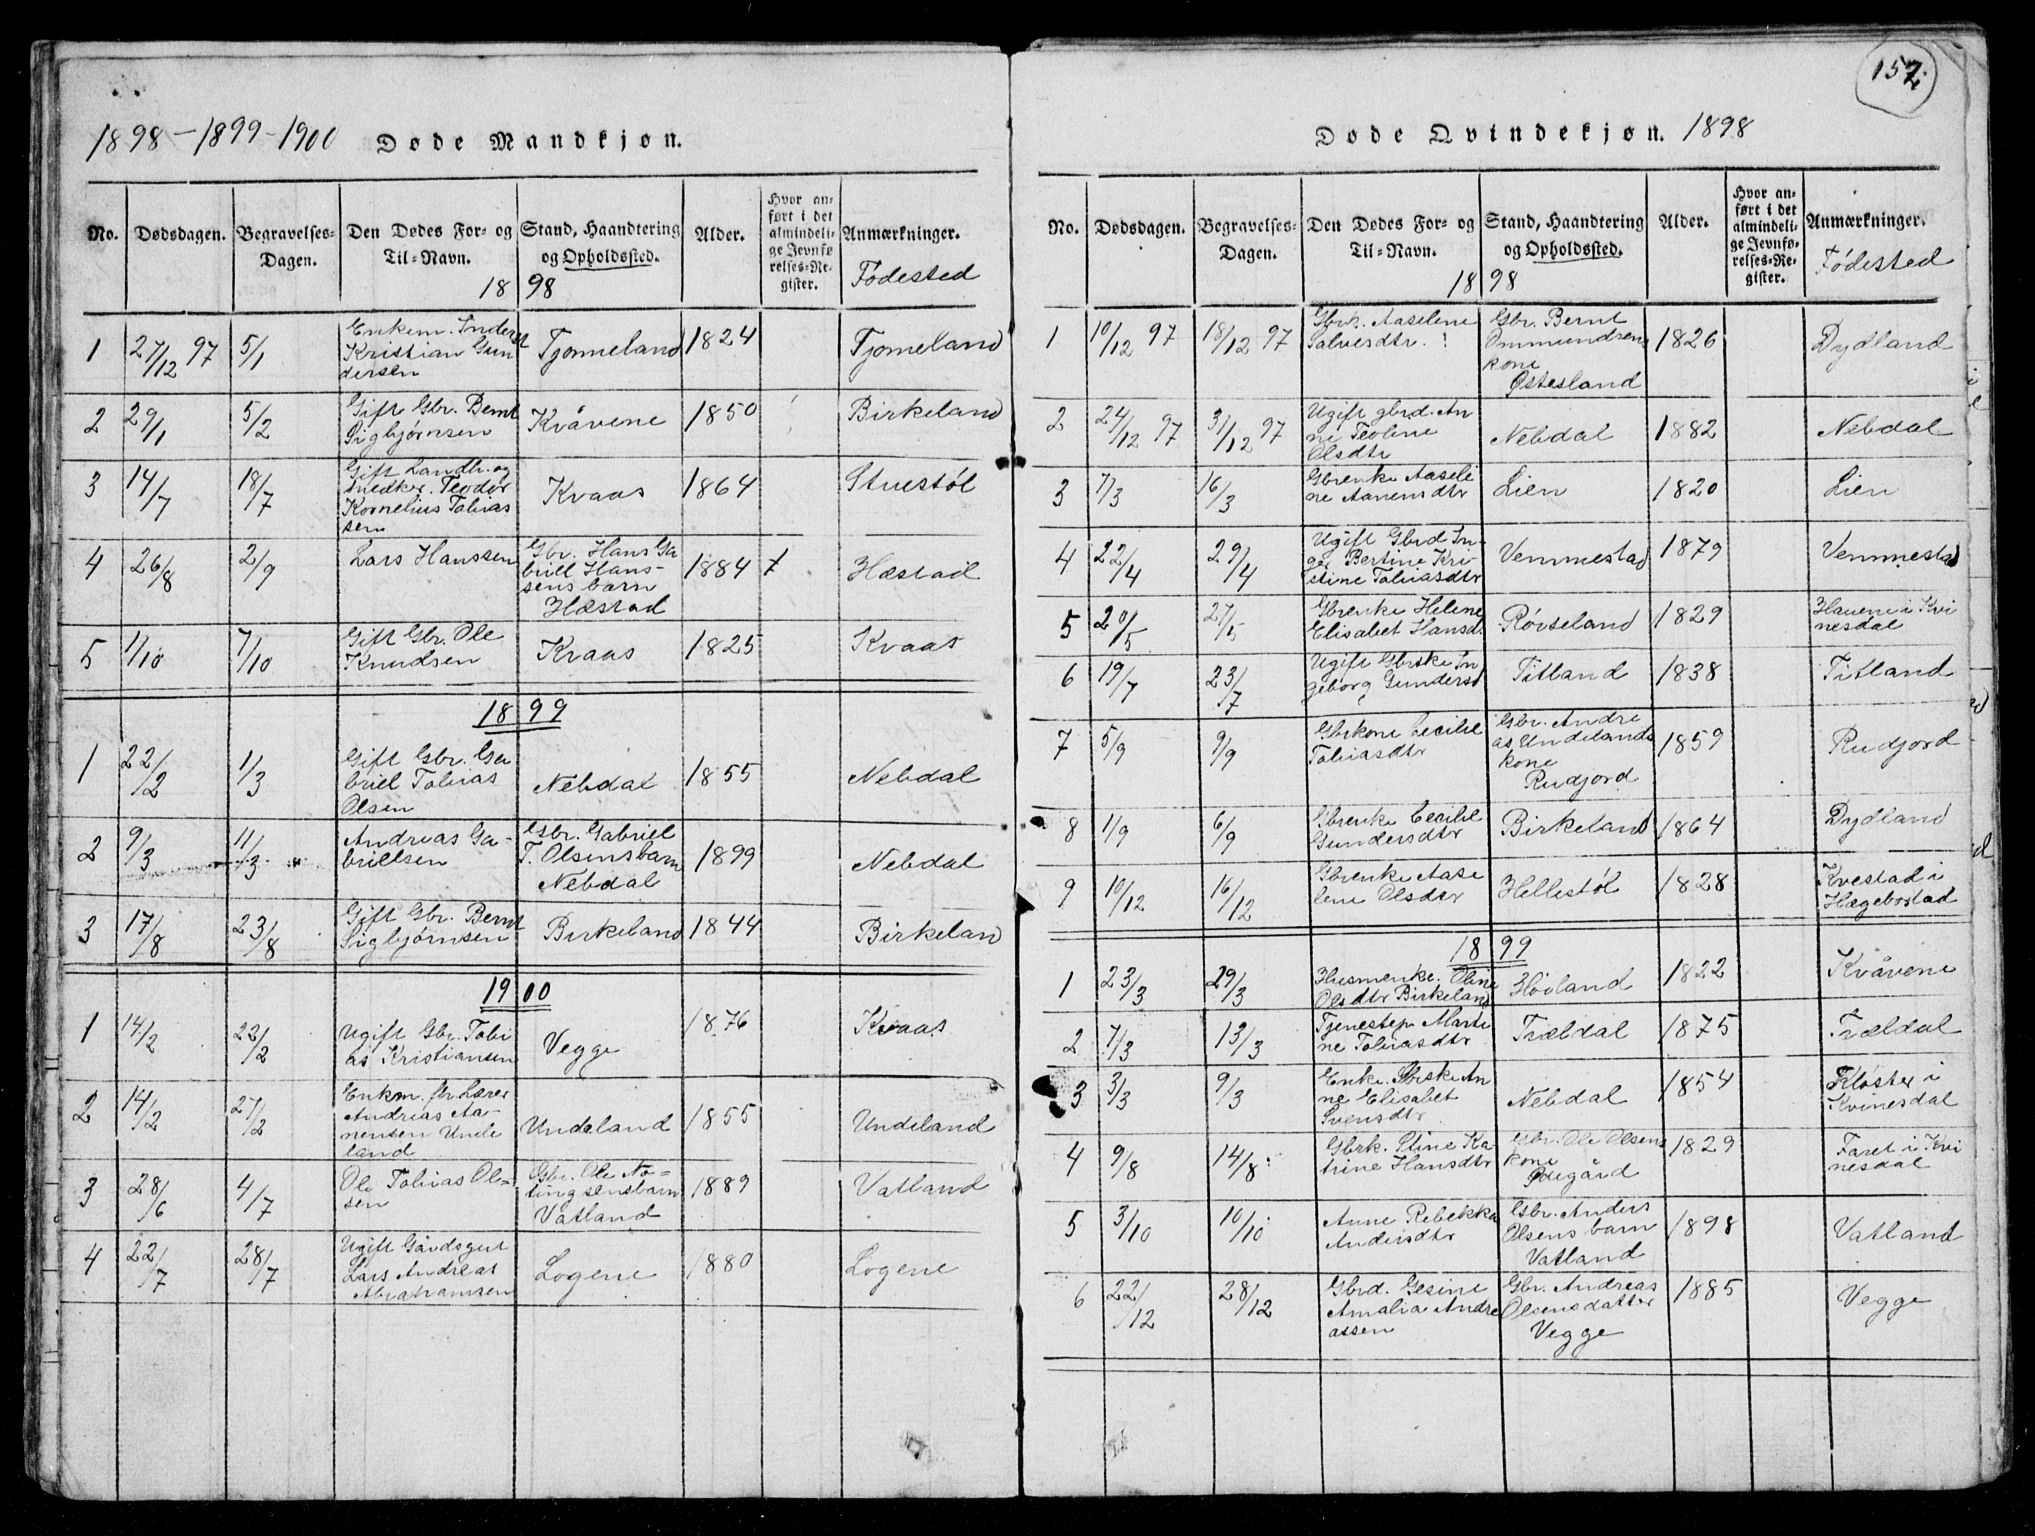 152.
1898-1899-1900 Døde Mandkjøn.
No. Dødsdagen. Begravelses-Dagen. Den Dødes For- og Til-Navn. Stand, Haandtering og Opholdssted. Alder. Hvor anført i det almindelige Jevnførelses-Register. Anmærkninger. Fødested
1898
1 27/12 97 5/1 Enkem. Inderst Kristian Gundersen Tjomeland 1824 Tjomeland
2 29/1 5/2 Gift Gbr. Bernt Sigbjørnsen Kvåvene 1850 Birkeland
3 14/7 18/7 Gift Landbr. og Snedker. Teodor Kornelius Tobiassen Kvaas 1864 Stuestøl
4 26/8 2/9 Lars Hanssen Gbr. Hans Gabriel Hanssens barn Hæstad 1884 Hæstad
5 1/10 7/10 Gift Gbr. Ole Knudsen Kvaas 1825 Kvaas
1899
1 22/2 1/3 Gift Gbr. Gabriel Tobias Olsen Nebdal 1855 Nebdal
2 9/3 11/3 Andreas Gabrielsen Gbr. Gabriel T. Olsens barn Nebdal 1899 Nebdal
3 17/8 23/8 Gift Gbr. Bernt Sigbjørnsen Birkeland 1844 Birkelan
1900
1 14/2 22/2 Ugift Gbr. Tobias Kristiansen Vegge 1876 Kvaas
2 14/2 27/2 Enkm. Lærer Andreas Aanensen Undeland Undeland 1855 Undeland
3 28/6 4/7 Ole Tobias Olesen Gbr. Ole barn Vatland 1889 Vatland
4 22/7 28/7 Ugift Gårdsgut Lars Andreas Abrahamsen Logene 1880 Logene
Døde Qvindekjøn. 1898
No. Dødsdagen. Begravelses-Dagen. Den Dødes For- og Til-Navn. Stand, Haandtering og Opholdssted. Alder. Hvor anført i det almindelige Jevnførelses-Register. Anmærkninger. Fødested
1898
1 10/12 97 18/12 97 Gbrk. Aaselene Salvesdtr. Gbr. Bernt Ommundsens kone Østesland 1826 Dydland
2 24/12 97 31/12 97 Ugift gbrd. Anne Teoline Olsdtr Nebdal 1882 Nebdal
3 7/3 16/3 Gbrenke Aaseline Aanensdtr Lien 1820 Lien
4 22/4 29/4 Ugift Gbrd Inge Bertine Kristine Tobiasdtr Vemmestad 1879 Vemmestad
5 20/5 27/5 Gbrenke Helene Elisabet Hansd. Røvseland 1829 i Kvinesdal
6 19/7 23/7 Ugift Gbrske Ingeborg Gundersd Titland 1838 Titland
7 5/9 9/9 Gbrkone Cecilie Tobiasdtr Gbr. Andreas Undelands kone Rudjord 1859 Rudjord
8 1/9 6/9 Gbrenke Cecilie Gundersdtr Birkeland 1864 Dydland
9 10/12 16/12 Gbrenke Aaselene Olsdtr Hellestøl 1828 Kvestad i Hægebostad
1899
1 23/3 29/3 Husmenke. Oline Olsdtr Birkeland Høiland 1822 Kvåvene
2 7/3 13/3 Tjenestep. Martine Tobiasdtr Trældal 1875 Trældal
3 3/3 9/3 Enke. Gbrske Anne Elisabet Svensdtr Nebdal 1854 Kloster i Kvinesdal
4 9/8 14/8 Gbrk. Stine Katrine Hansdtr Gbr. Ole Olsens kone 1829 Faret i Kvinesdal
5 3/10 10/10 Anne Rebekka Andersdtr Gbr. Anders Olsens barn Vatland 1898 Vatland
6 22/12 28/12 Gbrd. Gesine Amalia Andreassen Gbr. Andreas Olsens datter Vegge 1885 Vegge